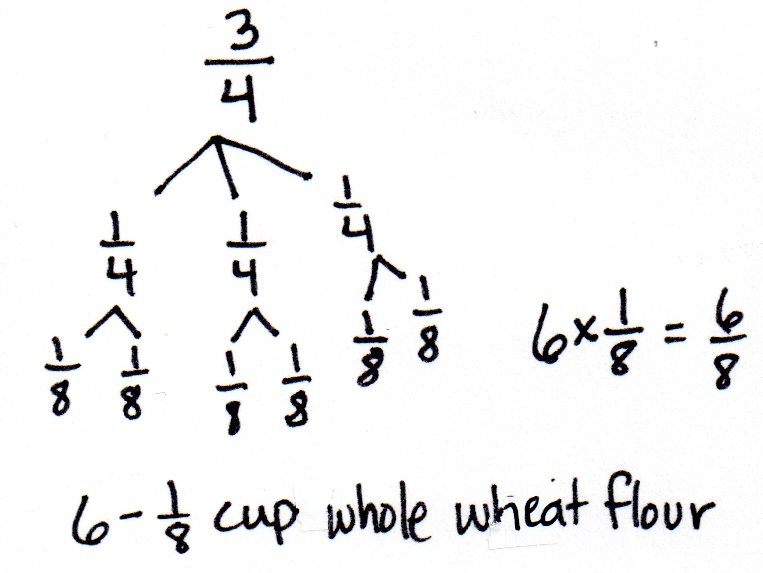 3/4
1/4 1/4 1/4
1/8 1/8 1/8 1/8 1/8 1/8
6 × 1/8 = 6/8
6 - 1/8 cup whole wheat flour